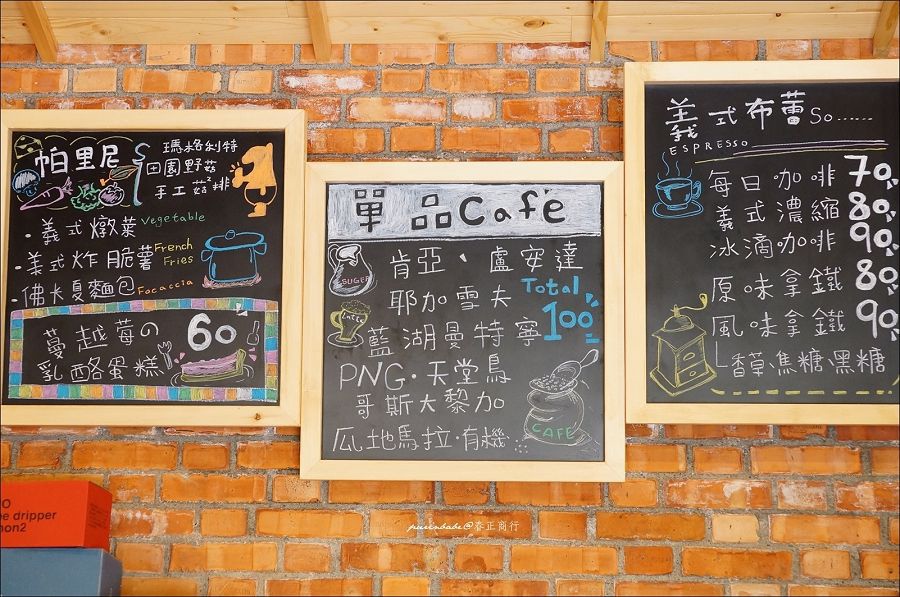 帕里尼
瑪格利特
田園野菇
手工菇排
·義式燉菜 Vegetable
·美式炸脆薯 French Fries
·佛卡夏麵包 Focaccia
蔓越莓の
乳酪蛋糕
60
單品Café
肯亞、盧安達
耶加雪夫
藍湖曼特寧
PNG·天堂鳥
哥斯大黎加
瓜地馬拉·有機
Total
100
SUGER
LATTE
CAFE
義式布蕾 So......
ESPRESSO
每日咖啡 70
義式濃縮 80
冰滴咖啡 90
原味拿鐵 80
風味拿鐵 90
└香草·焦糖·黑糖
dripper
puienbabe@春正商行